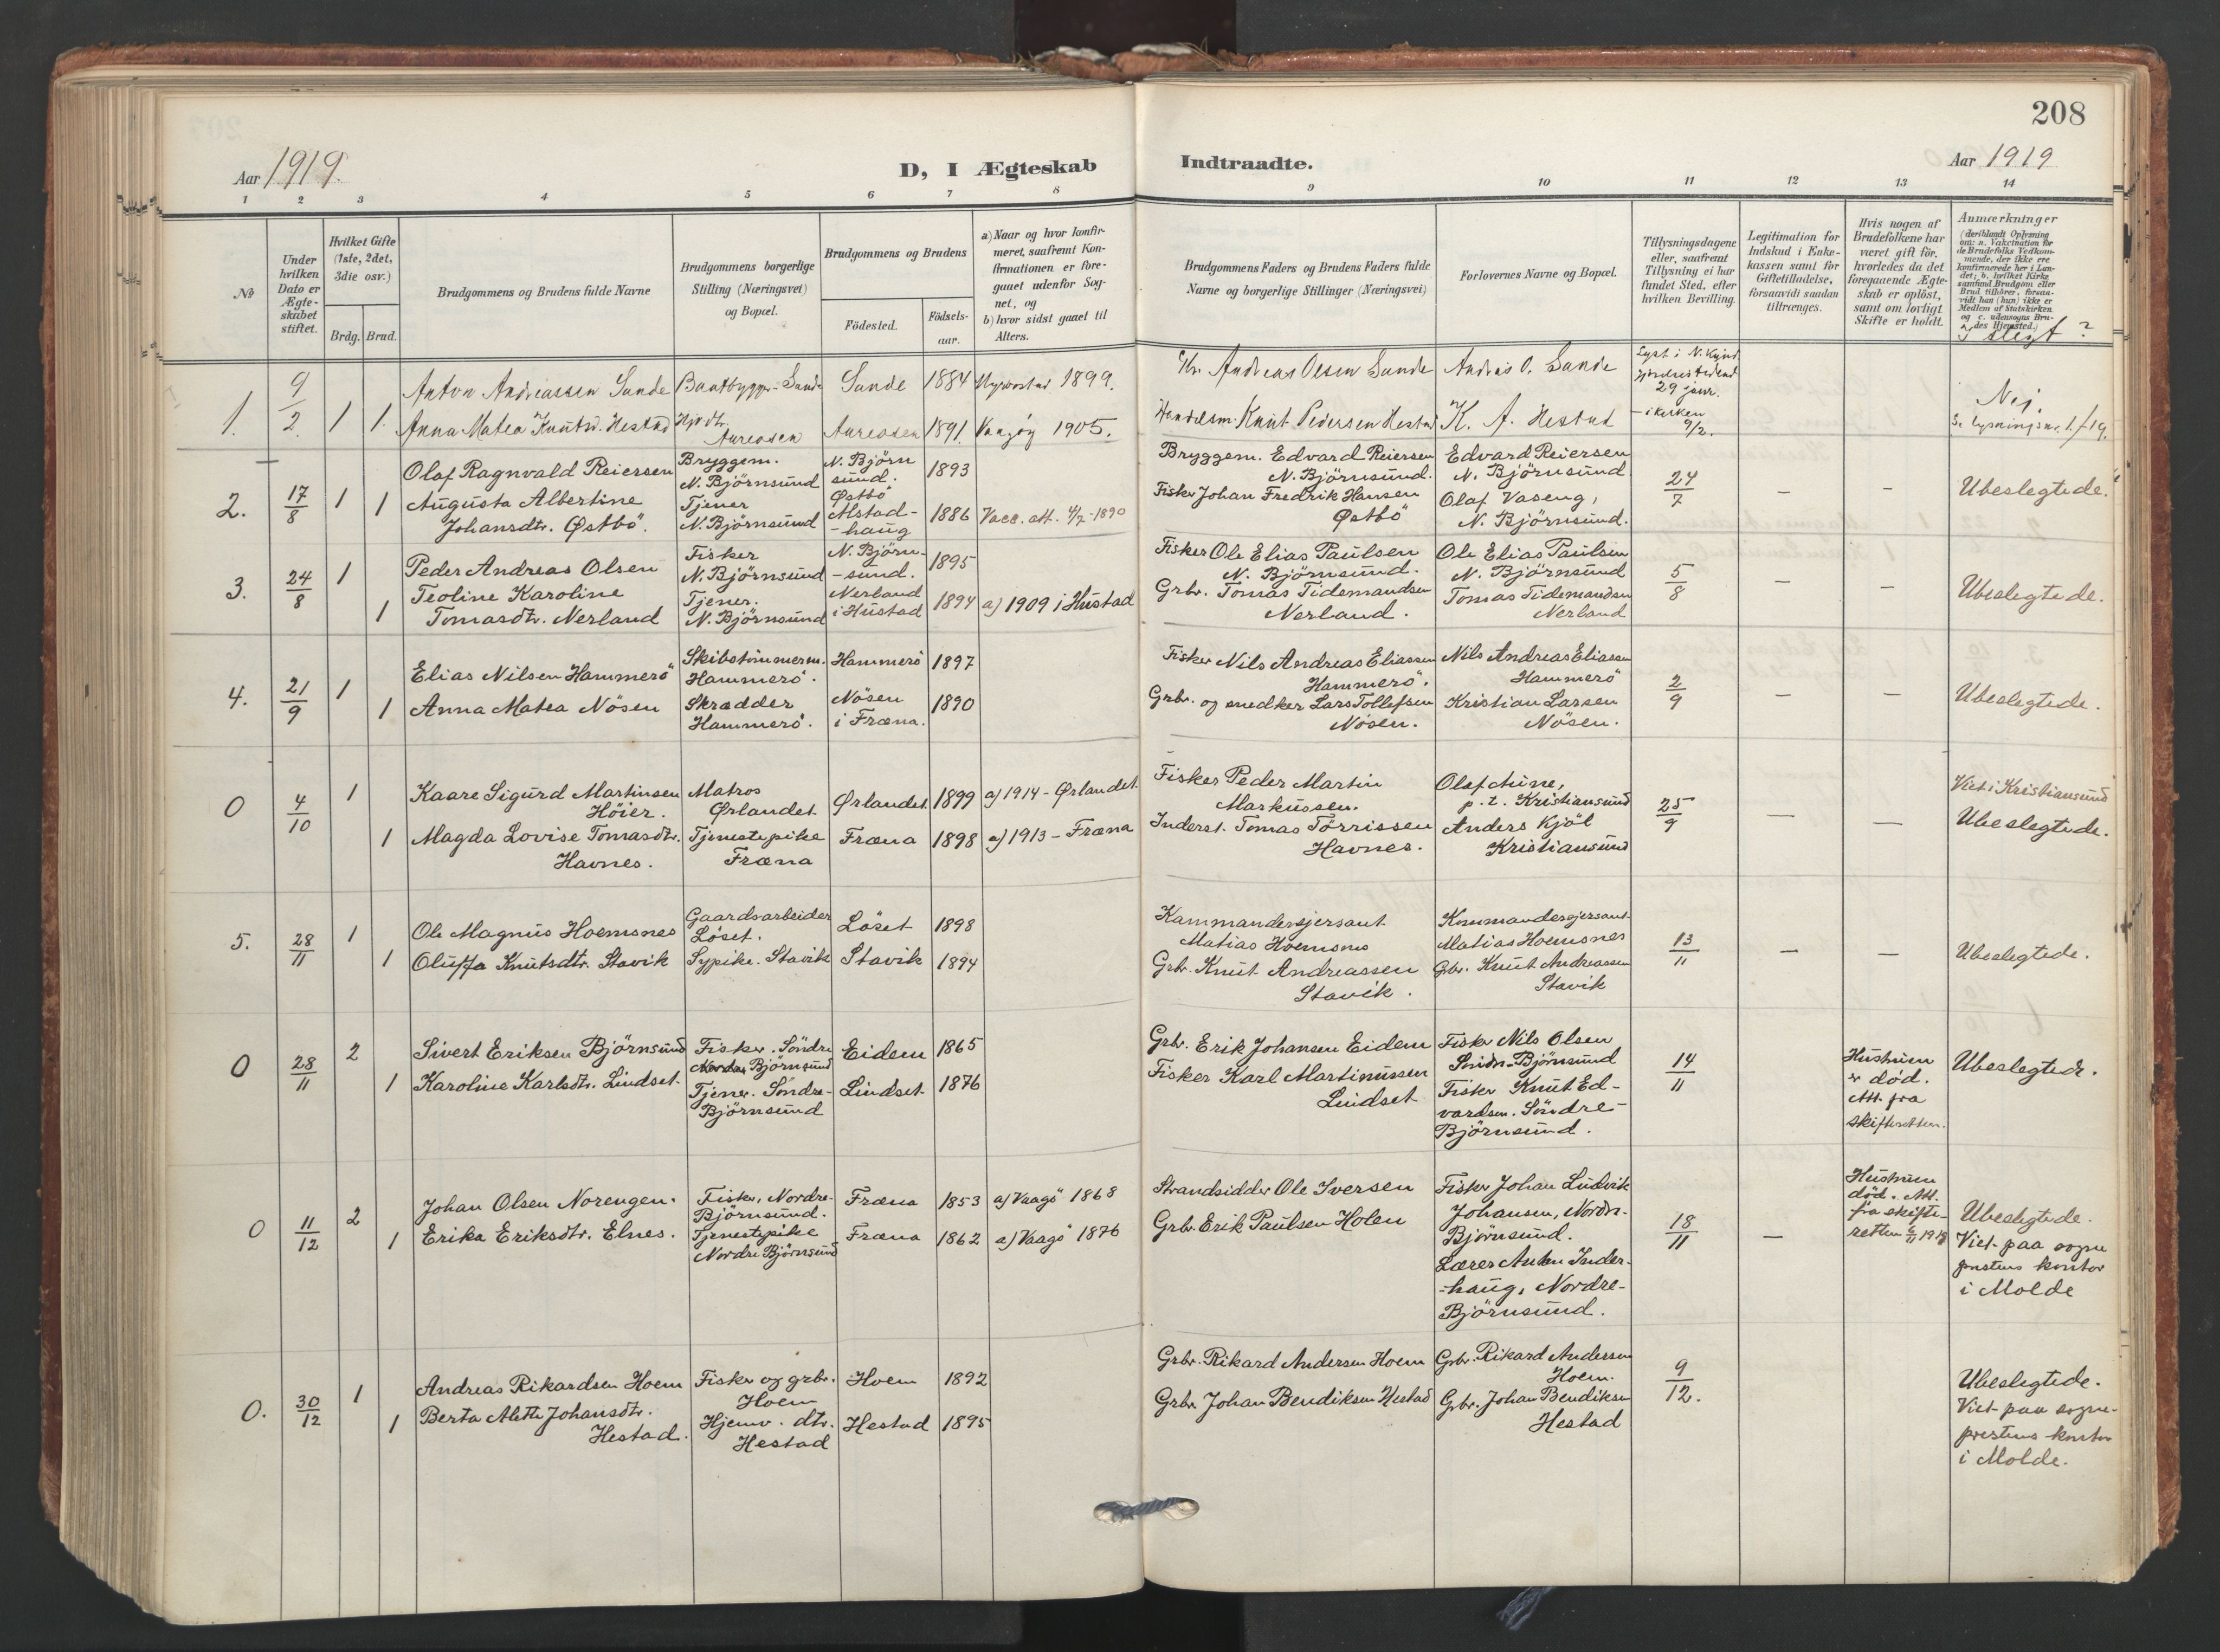 208
Aar 1919.
D, I Ægteskab
Indtraadte.
Aar 1919
1 2 3 4 5 6 7 8
9 10 11 12 13 14
№
Under hvilken Dato er Ægteskabet stiftet.
Hvilket Gifte (1ste, 2det, 3die osv.)
Brdg. Brud.
Brudgommens og Brudens fulde Navne
Brudgommens borgerlige Stilling (Næringsvei) og Bopæl.
Brudgommens og Brudens
Födested.
Födselsaar.
a) Naar og hvor konfirmeret, saafremt Konfirmationen er foregaaet udenfor Sognet, og
b) hvor sidst gaaet til Alters.
Brudgommens Faders og Brudens Faders fulde Navne og borgerlige Stillinger (Næringsvei)
Forlovernes Navne og Bopæl.
Tillysningsdagene eller, saafremt Tillysning ei har fundet Sted, efter hvilken Bevilling.
Legitimation for Indskud i Enkekassen samt for Giftetilladelse, forsaavidt saadan tiltrænges.
Hvis nogen af Brudefolkene har været gift før, hvorledes da det foregaaende Ægteskab er oplöst, samt om lovligt Skifte er holdt.
Anmærkninger
(deriblandt Oplysning om: a. Vakcination for de Brudefolks Vedkommende, der ikke ere konfirmerede her i Landet; b. hvilket Kirkesamfund Brudgom eller Brud tilhörer, forsaavidt han (hun) ikke er Medlem af Statskirken og c. udensogns Brudes Hjemsted.)
I slegt?
1. 9/2 1 1
Anton Andreassen Sunde
Baatbygger - Sunde
Sunde 1884
1899.
Andreas Olsen Sunde
Andreas O. Sunde
29 janr.
Nej.
Anna Matea Knutsd. Hestad
Aureosen
Aureosen 1891
Vaagöy 1905.
Handelsm. Knut Pedersen Hestad
K. A. Hestad
- i kirken 9/2.
Se lysningsnr. 1/19.
2. 17/8 1 1
Olaf Ragnvald Reiersen
Bryggem.
N. Björnsund
N. Björn
sund.
1893
Bryggem. Edvard Reiersen
N. Björnsund.
Edvard Reiersen
N. Björnsund.
24/7
-
-
Ubeslegtede.
Augusta Albertine
Johansdtr. Østbö.
Tjener
N. Björnsund
Østbö
Alstad-
-haug
1886
Vacc. att. 4/7 - 1890
Fisker Johan Fredrik Hansen
Østbö
Olaf Vaseng,
N. Björnsund.
3. 24/8 1 1
Peder Andreas Olsen
Fisker
N. Björnsund
N. Björn-
-sund.
1895
Fisker Ole Elias Paulsen
N. Björnsund.
Ole Elias Paulsen
N. Björnsund
5/8
-
-
Ubeslegtede.
Teoline Karoline
Tomasdtr. Nerland
Tjener.
N. Björnsund
Nerland
i Hustad
1894
a) 1909 i Hustad
Grbr. Tomas Tidemandsen
Nerland.
Tomas Tidemandsen
Nerland
4. 21/9 1 1
Elias Nilsen Hammerö
Skibstömmerm.
Hammerö.
Hammerö
1897
Fisker Nils Andreas Eliassen
Hammerö.
Nils Andreas Eliassen
Hammerö
2/9
-
-
Ubeslegtede.
Anna Matea Nösen
Skrædder
Hammerö.
Nösen
i Fræna.
1890
Grbr. og snedker Lars Tollefsen
Nösen.
Kristian Larsen
Nösen.
0 4/10 1 1
Kaare Sigurd Martinsen
Höier.
Matros
Ørlandet
Ørlandet
1899
a) 1914 - Ørlandet
Fisker Peder Martin
Markussen.
Olaf Aune,
p. t. Kristiansund
25/9
-
-
Viet i Kristiansund
Ubeslegtede.
Magda Lovise Tomasdtr.
Havnes.
Tjenestepike
Fræna
Fræna
1898
a) 1913 - Fræna
Inderst. Tomas Törrissen
Havnes.
Anders Kjöl
Kristiansund
5. 28/11 1 1
Ole Magnus Hoemsnes
Gaardsarbeider
Löset.
Löset
1898
Kammandersjersant
Matias Hoemsnes
Kommandersjersant
Matias Hoemsnes
13/11
-
-
Ubeslegtede.
Oluffa Knutsdtr. Stavik
Sypike. Stavik
Stavik
1894
Grbr. Knut Andreassen
Stavik.
Grbr. Knut Andreassen
Stavik
0 28/11 2 1
Sivert Eriksen Björnsund
Fisker. Söndre
Björnsund
Eidem
1865
Grbr. Erik Johansen Eidem
Fisker Nils Olsen
Söndre Björnsund
14/11
Hustruen
er död.
Att. fra
skifteretten.
Ubeslegtede.
Karoline Karlsdtr. Lindset.
Tjener. Söndre-
Björnsund
Lindset
1876
Fisker Karl Martinussen
Lindset
Fisker Knut Ed-
vardsen. Söndre-
Björnsund.
0 11/12 2 1
Johan Olsen Norengen.
Fisker, Nordre-
Björnsund.
Fræna
1853
a) Vaagö 1868
Strandsidder Ole Iversen
Fisker Johan Ludvik
Johansen, Nordre-
Björnsund.
18/11
-
Hustruen
död. Att.
fra skifte-
retten 1918
Ubeslegtede.
Viet paa sogne
prestens kontor
i Molde
Erika Eriksdtr. Elnes.
Tjenestepike
Nordre Björnsund
Fræna
1862
a) Vaagö 1876
Grbr. Erik Paulsen Holen
Lærer Anton Inder-
-haug, Nordre-
Björnsund.
0. 30/12 1 1
Andreas Rikardsen Hoem
Fisker og grbr.
Hoem
Hoem
1892
Grbr. Rikard Andersen Hoem
Grbr. Rikard Andersen
Hoem.
9/12.
Ubeslegtede.
Viet paa sogne-
prestens kontor
i Molde.
Berta Alette Johansdtr.
Hestad.
Hjemv. dtr.
Hestad
Hestad
1895
Grbr Johan Bendiksen Hestad
Grbr. Johan Bendiksen
Hestad